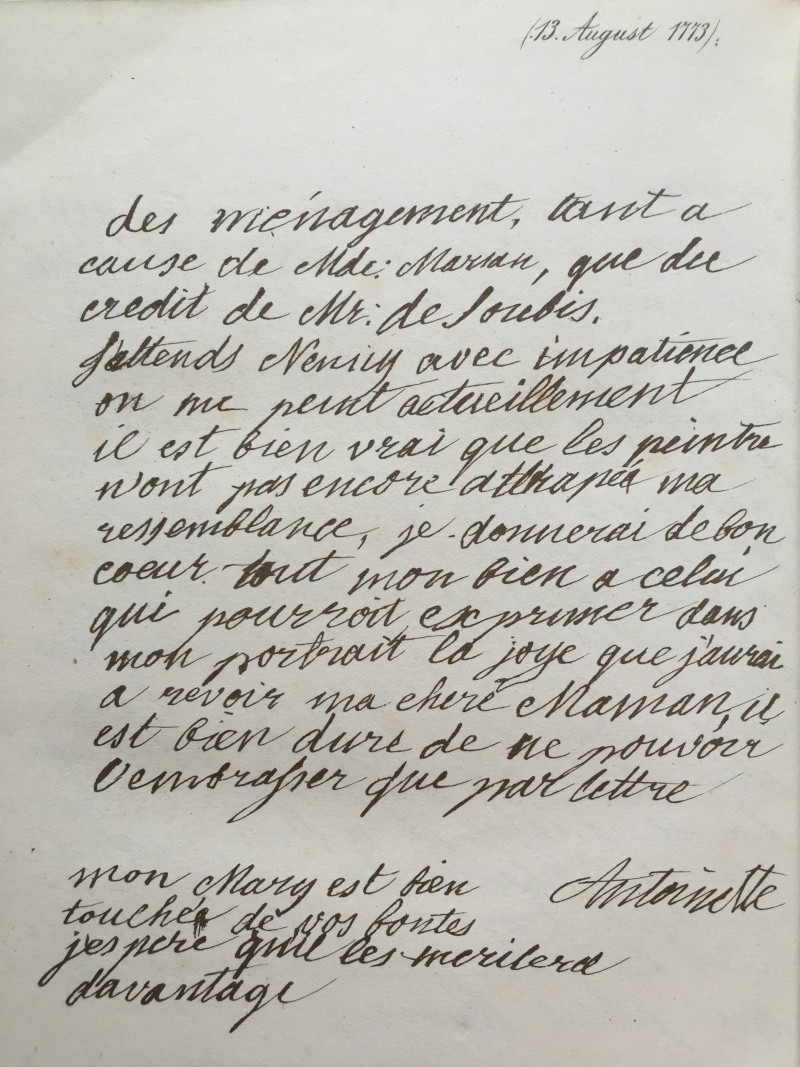 (13. August 1773).
des ménagement, tant a
cause de Mde: Marsan, que du
credit de Mr: de Soubis.
J'attends Nenny avec impatience
on me peint actueillement
il est bien vrai que les peintre
n'ont pas encore attrapée ma
ressemblance, je donnerai de bon
coeur tout mon bien a celui
qui pourroit exprimer dans
mon portrait la joye que j'aurai
a revoir ma chere Maman, il
est bien dure de ne pouvoir
l'embrasser que par lettre
Antoinette
mon Mary est bien
touchée de vos bontes
j'espere qu'il les meritera
davantage